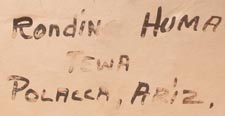 Rondin Huma
Tewa
Polacca, Ariz.